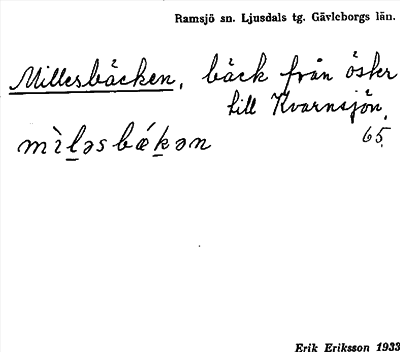 Ramsjö sn. Ljusdals tg. Gävleborgs län.
Millesbäcken, bäck från öster
till Kvarnsjön,
65.
mìl̲əsbǽk̲ən
Erik Eriksson 1933